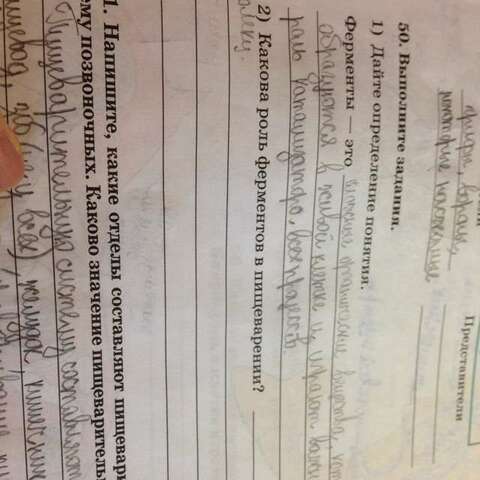 Представители
грифы, вороны,
некоторые насекомые
50. Выполните задания.
1) Дайте определение понятия.
Ферменты — это органические вещества,
образуются в живой клетке и играют
роль катализатора, всех процессов.
2) Какова роль ферментов в пищеварении?
1. Напишите, какие отделы составляют пищевар
ему позвоночных. Каково значение пищеваритель
Пищеварительную систему составляют
пищевод, зоб (не у всех), желудок, кишечник